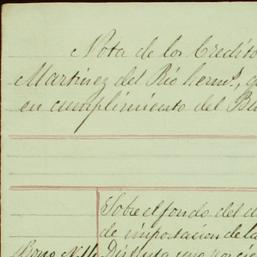 Nota de los Credito
Martinez del Rio hermˢ,
en cumplimiento del
Sobre el fondo del
de importacion de la
Bono Nº